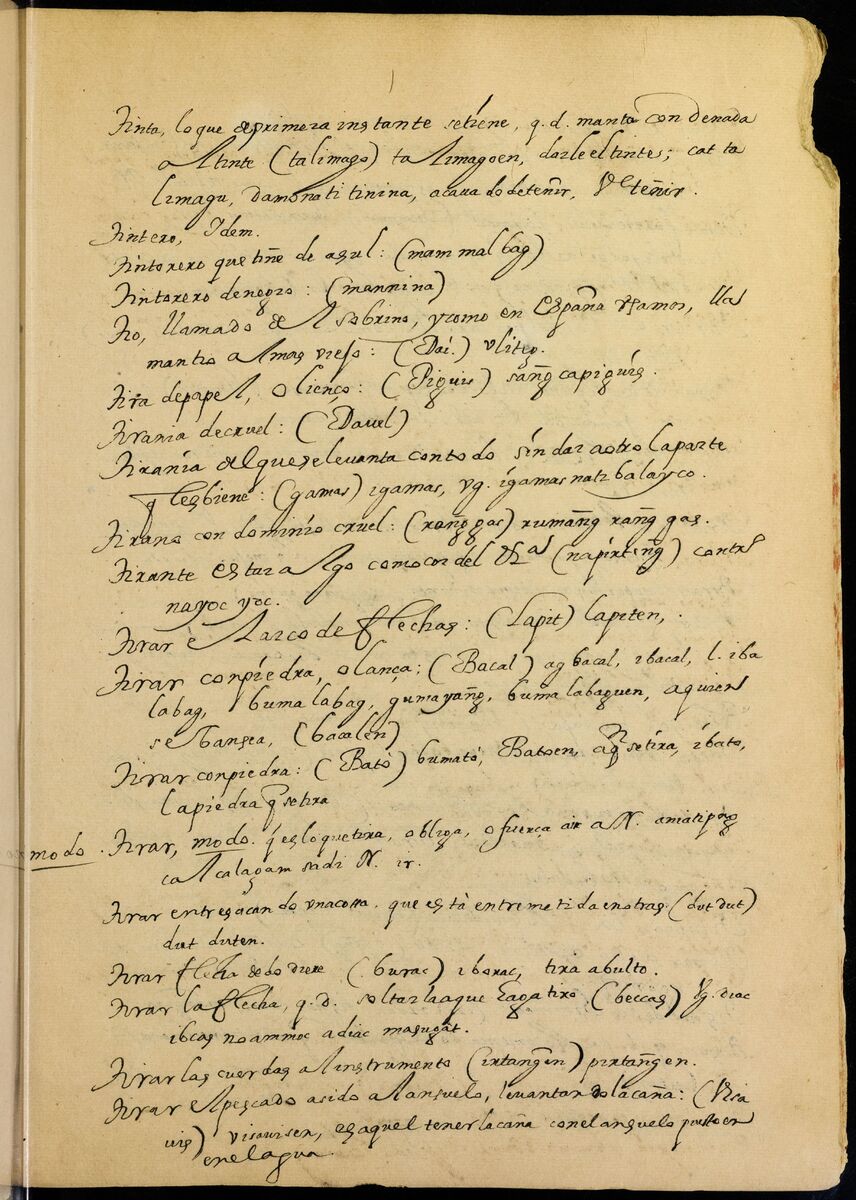 Tinta, lo que de primera instante se tiene, q. d. manta condenada
al tinte (talimago) talimagoen, darle el tintes; cat ta
limagu, damonati tinina, acauado de teñir, Vel teñir.
Tintero, Idem.
Tintorero que tiñe de asul: (mammalbag)
Tintorero de negro: (mannina)
Tio, llamado del sobrino, y como en España usamos, lla
mantio al mas viejo: (Dai.) Vliteg.
Tira de papel, o lienço: (Piguis) sang̃ capiguis.
Tirania de cruel: (Dauel)
Tirania del que se leuanta con todo sin dar a otro la parte
q les biene: (gamas) igamas, vg. igamas nati balayco.
Tirano con dominio cruel: (rang̃gas) rumang̃ rang̃gas.
Tirante estar algo como cordel (napirteng̃)
nayoc yoc.
Tirar el arco de flechas: (Lapit) lapiten,.
Tirar con piedra, o lança: (Bacal) ag bacal, ibacal, l. iba
labag, bumalabag, gumayang̃, bumalabaguen, a quien
se (bacalen)
Tirar con piedra: (Bató) bumató, Batoen, aq se tira, ibato,
la piedra q se tira
modo . Tirar, modo. q es lo que tira, obliga, o fuerça air a N.
calcalagam sadi N. ir.
Tirar entresacando vna cossa que està entremetida en otras (dutdut)
dut duten.
Tirar flecha dedo diere (burac) iborac, tira abulto.
Tirar la flecha, q. d. soltar la que (beccas) Vg. diac
ibcas no ammoc adiac masugat.
Tirar las cuerdas al instrumento (irtang̃en) pirtang̃en.
Tirar el pescado asido al ansuelo, leuantando la caña: (Visa
uis) visauisen, es aquel tener la caña con el ansuelo puesto en
en el agua.